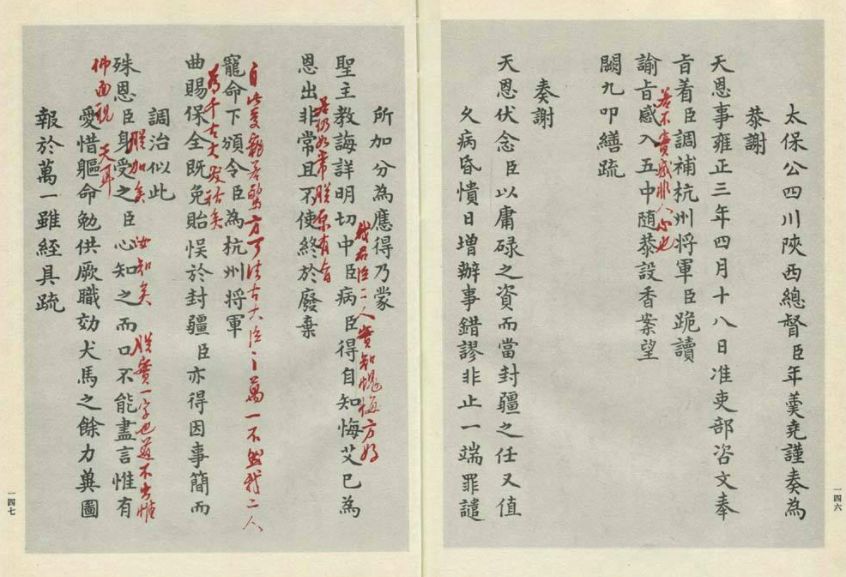 太保公四川陝西總督臣年羹堯謹奏為
恭謝
天恩事雍正三年四月十八日准吏部咨文奉
旨着臣調補杭州將軍臣跪讀
若不實感非人心也
諭旨感入五中随恭設香案望
闕九叩繕疏
奏謝
天恩伏念臣以庸碌之資而當封疆之任又值
久病昏憒日增辦事錯謬非止一端罪譴
一四六
所加分為應得乃蒙
我君臣二人實知愧悔方好
聖主教誨詳明切中臣病臣得自知悔艾已為
若仍如常朕原有旨
恩出非常且不使終於廢棄
自此萬一不與我二人
寵命下頒令臣為杭州將軍
為千古大笑話矣
曲賜保全既免貽悞於封疆臣亦得因事簡而
調治似此
朕加矣 汝知矣 朕實一字也道不出惟
殊恩臣身受之臣心知之而口不能盡言惟有
佛面視天耳
愛惜軀命勉供厥職効犬馬之餘力冀圖
報於萬一雖經具疏
一四七